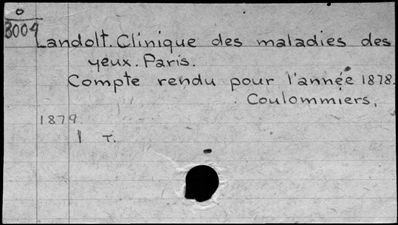 O
3009
Landolt. Clinique des maladies des
yeux. Paris.
Compte rendu pour l'année 1878.
Coulommiers,
1879
1 T.